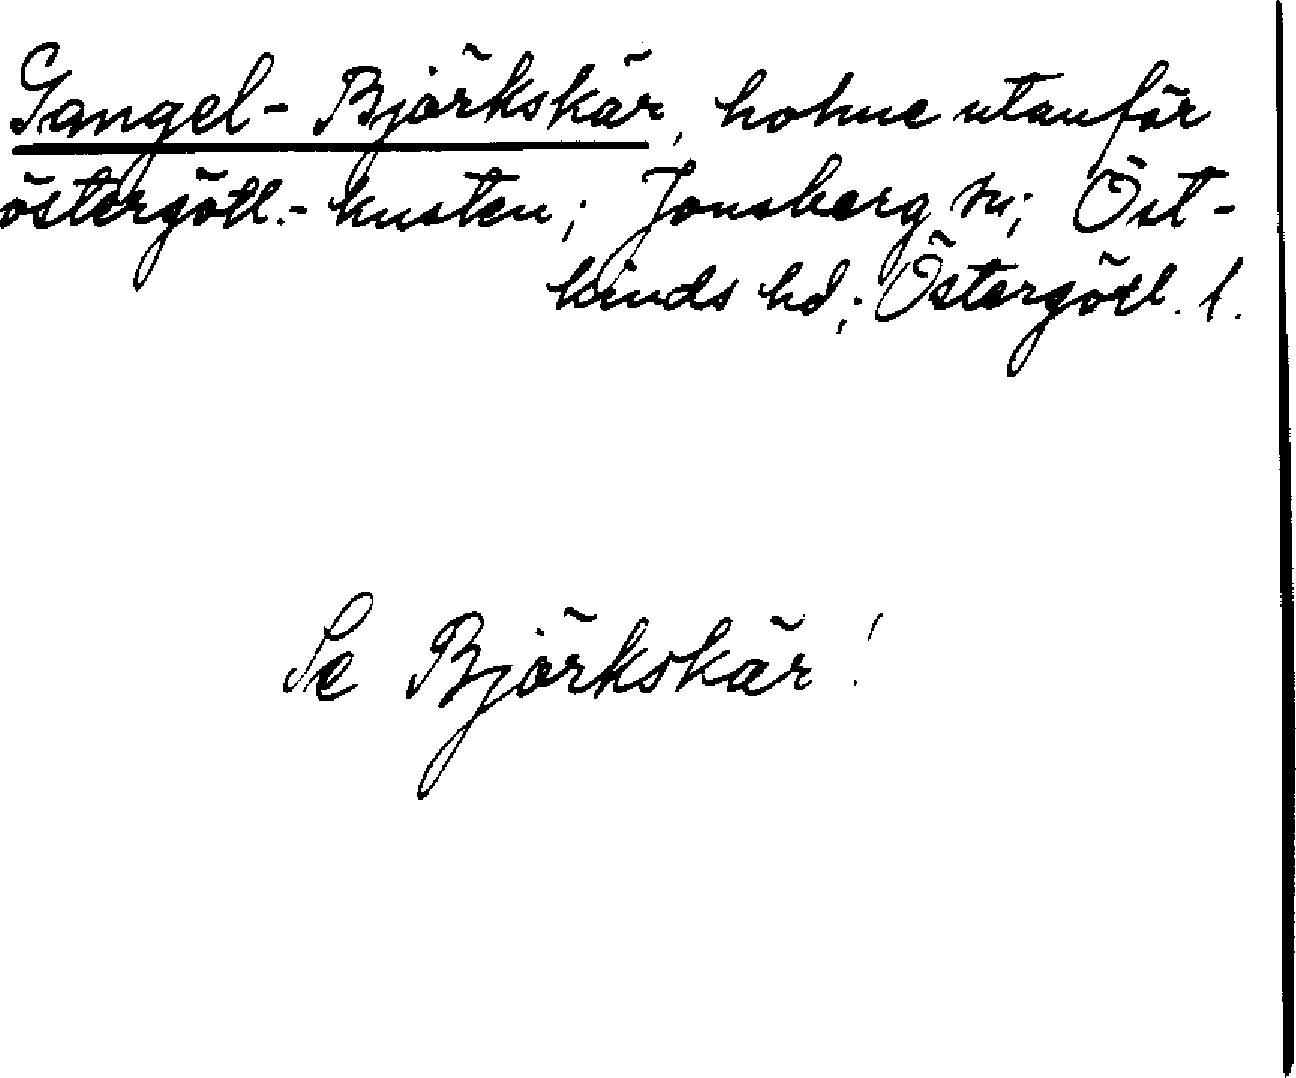 Gangel-Björkskär, holme utanför
östergötl.-kusten; Jonsberg sn; Öst-
kinds hd; Östergötl. l.
Se Björkskär!